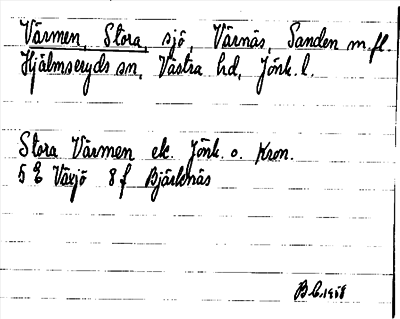 Värmen, Stora, sjö, Värnäs, Sanden m.fl.
Hjälmseryds sn, Västra hd, Jönk. l.
Stora Värmen ek. Jönk. o. Kron.
5 E Växjö 8 f Bjärknäs
B.C. 1958